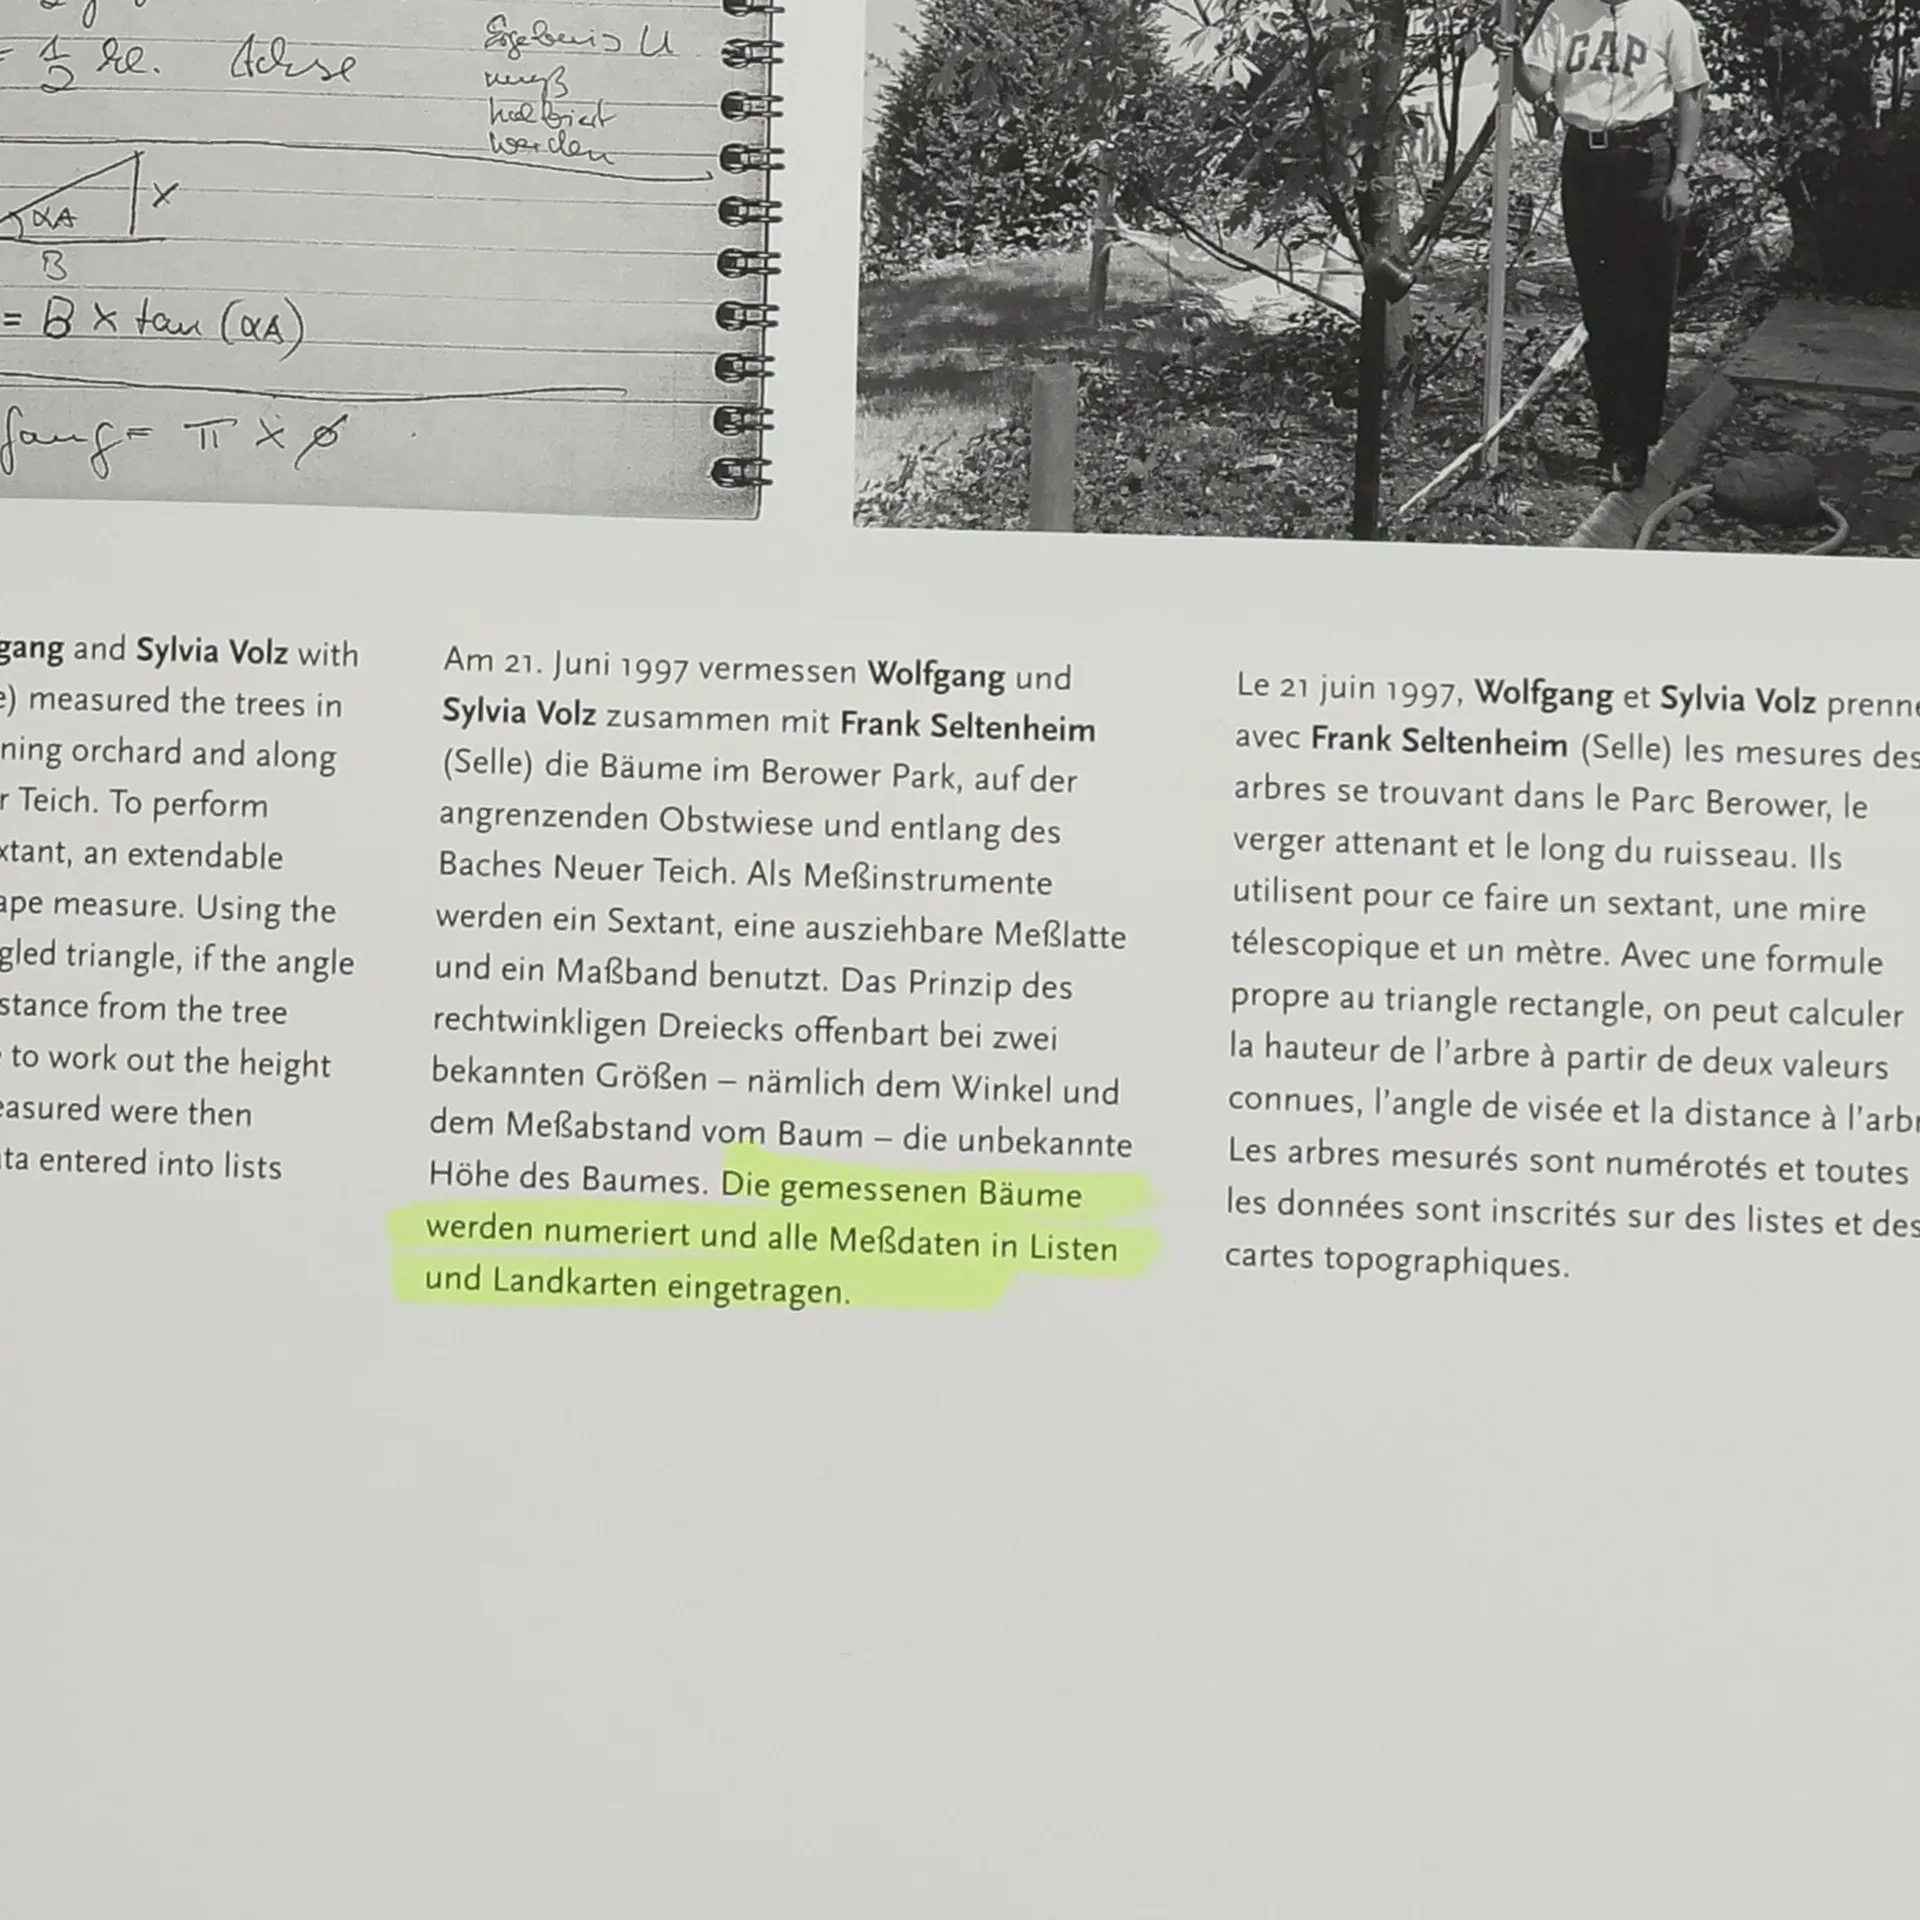 = 1/2 kl. Achse
Ergebnis U
muß
halbiert
werden
αA
x
B
= B × tan (αA)
fang = π × ø
GAP
gang and Sylvia Volz with
e) measured the trees in
ning orchard and along
r Teich. To perform
xtant, an extendable
ape measure. Using the
gled triangle, if the angle
stance from the tree
to work out the height
easured were then
ta entered into lists
Am 21. Juni 1997 vermessen Wolfgang und
Sylvia Volz zusammen mit Frank Seltenheim
(Selle) die Bäume im Berower Park, auf der
angrenzenden Obstwiese und entlang des
Baches Neuer Teich. Als Meßinstrumente
werden ein Sextant, eine ausziehbare Meßlatte
und ein Maßband benutzt. Das Prinzip des
rechtwinkligen Dreiecks offenbart bei zwei
bekannten Größen – nämlich dem Winkel und
dem Meßabstand vom Baum – die unbekannte
Höhe des Baumes. Die gemessenen Bäume
werden numeriert und alle Meßdaten in Listen
und Landkarten eingetragen.
Le 21 juin 1997, Wolfgang et Sylvia Volz prenne
avec Frank Seltenheim (Selle) les mesures des
arbres se trouvant dans le Parc Berower, le
verger attenant et le long du ruisseau. Ils
utilisent pour ce faire un sextant, une mire
télescopique et un mètre. Avec une formule
propre au triangle rectangle, on peut calculer
la hauteur de l'arbre à partir de deux valeurs
connues, l'angle de visée et la distance à l'arbr
Les arbres mesurés sont numérotés et toutes
les données sont inscrités sur des listes et des
cartes topographiques.